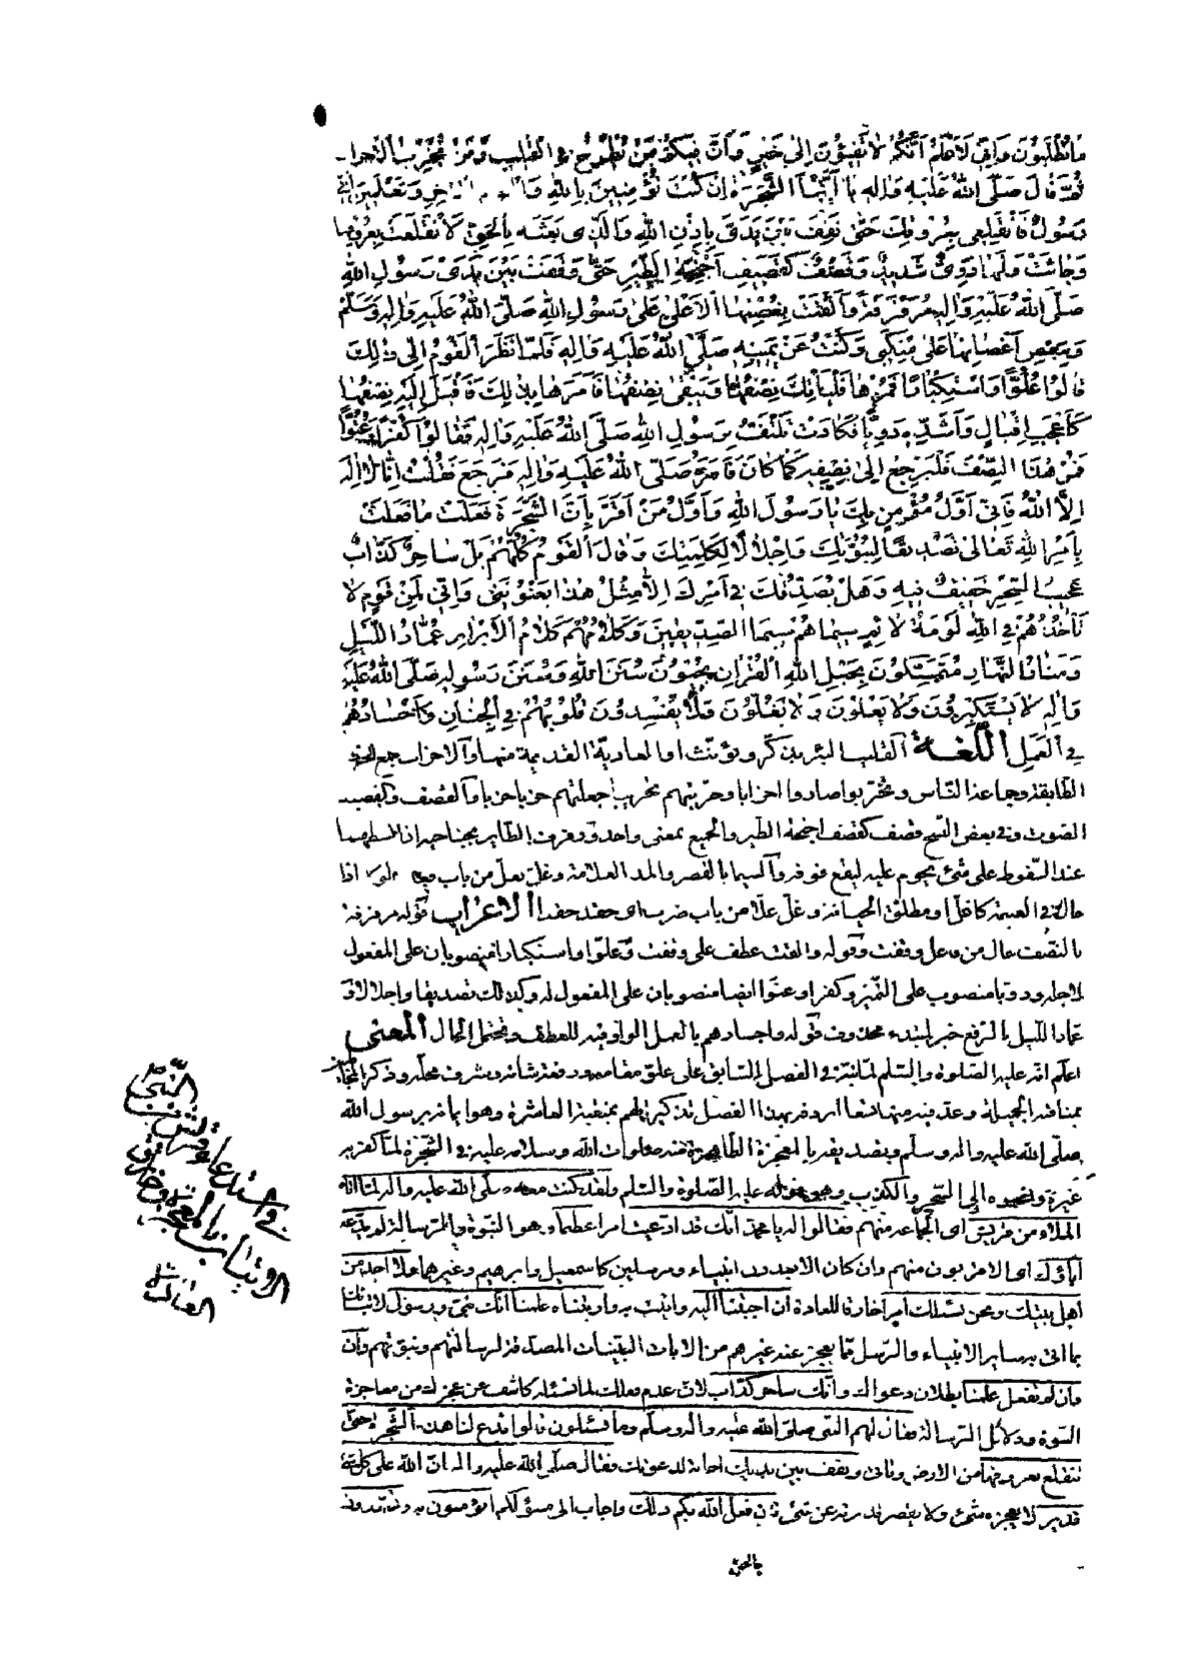 مَا تَطْلُبُونَ وَإِنِّي لَأَعْلَمُ أَنَّكُمْ لَا تَفِيئُونَ إِلَى خَيْرٍ وَأَنَّ فِيكُمْ مَنْ يُطْرَحُ فِي الْقَلِيبِ وَمَنْ يُحَزِّبُ الْأَحْزَابَ
ثُمَّ قَالَ صَلَّى اللهُ عَلَيْهِ وَآلِهِ يَا أَيَّتُهَا الشَّجَرَةُ إِنْ كُنْتِ تُؤْمِنِينَ بِاللهِ وَتَعْلَمِينَ أَنِّي
رَسُولُ فَانْقَلِعِي بِعُرُوقِكِ حَتَّى تَقِفِي بَيْنَ يَدَيَّ بِإِذْنِ اللهِ وَالَّذِي بَعَثَهُ بِالْحَقِّ لَانْقَلَعَتْ بِعُرُوقِهَا
وَجَاءَتْ وَلَهَا دَوِيٌّ شَدِيدٌ وَقَصْفٌ كَقَصِيفِ أَجْنِحَةِ الطَّيْرِ حَتَّى وَقَفَتْ بَيْنَ يَدَيْ رَسُولِ اللهِ
صَلَّى اللهُ عَلَيْهِ وَآلِهِ مُرَفْرِفَةً وَأَلْقَتْ بِغُصْنِهَا الْأَعْلَى عَلَى رَسُولِ اللهِ صَلَّى اللهُ عَلَيْهِ وَآلِهِ وَسَلَّمَ
وَبِبَعْضِ أَغْصَانِهَا عَلَى مَنْكِبِي وَكُنْتُ عَنْ يَمِينِهِ صَلَّى اللهُ عَلَيْهِ وَآلِهِ فَلَمَّا نَظَرَ الْقَوْمُ إِلَى ذَلِكَ
قَالُوا عُلُوًّا وَاسْتِكْبَارًا فَمُرْهَا فَلْيَأْتِكَ نِصْفُهَا وَيَبْقَى نِصْفُهَا فَأَمَرَهَا بِذَلِكَ فَأَقْبَلَ إِلَيْهِ نِصْفُهَا
كَأَعْجَبِ إِقْبَالٍ وَأَشَدِّهِ دَوِيًّا فَكَادَتْ تَلْتَفُّ بِرَسُولِ اللهِ صَلَّى اللهُ عَلَيْهِ وَآلِهِ فَقَالُوا كُفْرًا وَعُتُوًّا
فَمُرْ هَذَا النِّصْفَ فَلْيَرْجِعْ إِلَى نِصْفِهِ كَمَا كَانَ فَأَمَرَهُ صَلَّى اللهُ عَلَيْهِ وَآلِهِ فَرَجَعَ فَقُلْتُ أَنَا لَا إِلَهَ
إِلَّا اللهُ فَإِنِّي أَوَّلُ مُؤْمِنٍ بِكَ يَا رَسُولَ اللهِ وَأَوَّلُ مَنْ أَقَرَّ بِأَنَّ الشَّجَرَةَ فَعَلَتْ مَا فَعَلَتْ
بِأَمْرِ اللهِ تَعَالَى تَصْدِيقًا لِنُبُوَّتِكَ وَإِجْلَالًا لِكَلِمَتِكَ وَقَالَ الْقَوْمُ كُلُّهُمْ بَلْ سَاحِرٌ كَذَّابٌ
عَجِيبُ السِّحْرِ خَفِيفٌ فِيهِ وَهَلْ يُصَدِّقُكَ فِي أَمْرِكَ إِلَّا مِثْلُ هَذَا يَعْنُونَنِي وَإِنِّي لَمِنْ قَوْمٍ لَا
تَأْخُذُهُمْ فِي اللهِ لَوْمَةُ لَائِمٍ سِيمَاهُمْ سِيمَا الصِّدِّيقِينَ وَكَلَامُهُمْ كَلَامُ الْأَبْرَارِ عُمَّارُ اللَّيْلِ
وَمَنَارُ النَّهَارِ مُتَمَسِّكُونَ بِحَبْلِ اللهِ الْقُرْآنِ يُحْيُونَ سُنَنَ اللهِ وَسُنَنَ رَسُولِهِ صَلَّى اللهُ عَلَيْهِ
وَآلِهِ لَا يَسْتَكْبِرُونَ وَلَا يَعْلُونَ وَلَا يَغُلُّونَ وَلَا يُفْسِدُونَ قُلُوبُهُمْ فِي الْجِنَانِ وَأَجْسَادُهُمْ
فِي الْعَمَلِ اللّغة القليب البئر يذكّر ويؤنّث او العادية القديمة منها والاحزاب جمع الحزب
الطائفة وجماعة النّاس وتحزّبوا صاروا احزابا وحزّبتهم تحزيبا جعلتهم حزبا حزبا والقصف والقصيف
الصّوت وفي بعض النّسخ وقصف كقصف اجنحة الطير والجميع بمعنى واحد ورفرف الطّاير بجناحيه اذا بسطهما
عند السّقوط على شيء يحوم عليه ليقع فوقه والسيما بالقصر والمد العلامة وغلّ يغلّ من باب اذا
خان في الغنيمة كاغلّ او مطلق الخيانة وغلّ غلّا من باب ضرب اى حقد حقدا الاعراب قوله مرفرفة
بالنّصب حال من فاعل وقفت وقوله والقت عطف على وقفت وعلوّا واستكبارا منصوبان على المفعول
لاجله ودويّا منصوب على التّميز وكفرا وعتوّا ايضا منصوبان على المفعول له وكذلك تصديقا واجلالا و
عمّار اللّيل بالرّفع خبر لمبتدء محذوف وقوله واجسادهم بالعمل الواو فيه للعطف وتحتمل الحال المعنى
اعلم انّه عليه الصّلوة والسّلم لمّا نبّه في الفصل السّابق على علوّ مقامه ورفعة شأنه وشرف محلّه وذكر
بمناقبه الجميلة وعدّ فيه منها تسعا اردفه بهذا الفصل تذكيرا لهم بمنقبته العاشرة وهو ايمانه برسول الله
صلّى الله عليه واله وسلّم وتصديقه بالمعجزة الظّاهرة منه صلوات الله وسلامه عليه في الشّجرة لمّا كفر به
غيره ونسبوه إلى السّحر والكذب وهو قوله عليه الصّلوة والسّلم ولقد كنت معه صلّى الله عليه واله لمّا اتاه
الملاء من قريش اى الجماعة منهم فقالوا له يا محمّد انّك قد ادّعيت امرا عظيما وهو النّبوّة والرّسالة لم يدّعه
اباؤك اى الاقربون منهم وان كان الابعدون انبياء ومرسلين كاسمعيل وابرهيم وغيرهما ولا احد من
اهل بيتك ونحن نسئلك امرا خارقا للعادة ان اجبتنا اليه واتيت به واريتناه علمنا انّك نبيّ ورسول لاتيانك
بما اتى به ساير الانبياء والرّسل ممّا يعجز عنه غيرهم من الايات البيّنات المصدّقة لرسالتهم ونبوّتهم وان
وان لم تفعل علمنا بطلان دعواك وانّك ساحر كذّاب لانّ عدم فعلك لما نسئله كاشف عن عجزك من معاجزة
النّبوّة ودلائل الرّسالة فقال لهم النّبي صلّى الله عليه واله وسلّم وما تسئلون قالوا تدع لنا هذه الشّجرة حتّى
تنقلع بعروقها من الارض وتأتى وتقف بين يديك اجابة لدعوتك فقال صلّى الله عليه واله انّ الله على كلّ شيء
قدير لا يعجزه شيء ولا يقصر قدرته عن شيء فان فعل الله بكم ذلك واجاب الى مسؤلكم اتؤمنون به وتشهدون
بالحقّ
في استدعاء قريش من
النّبيّ